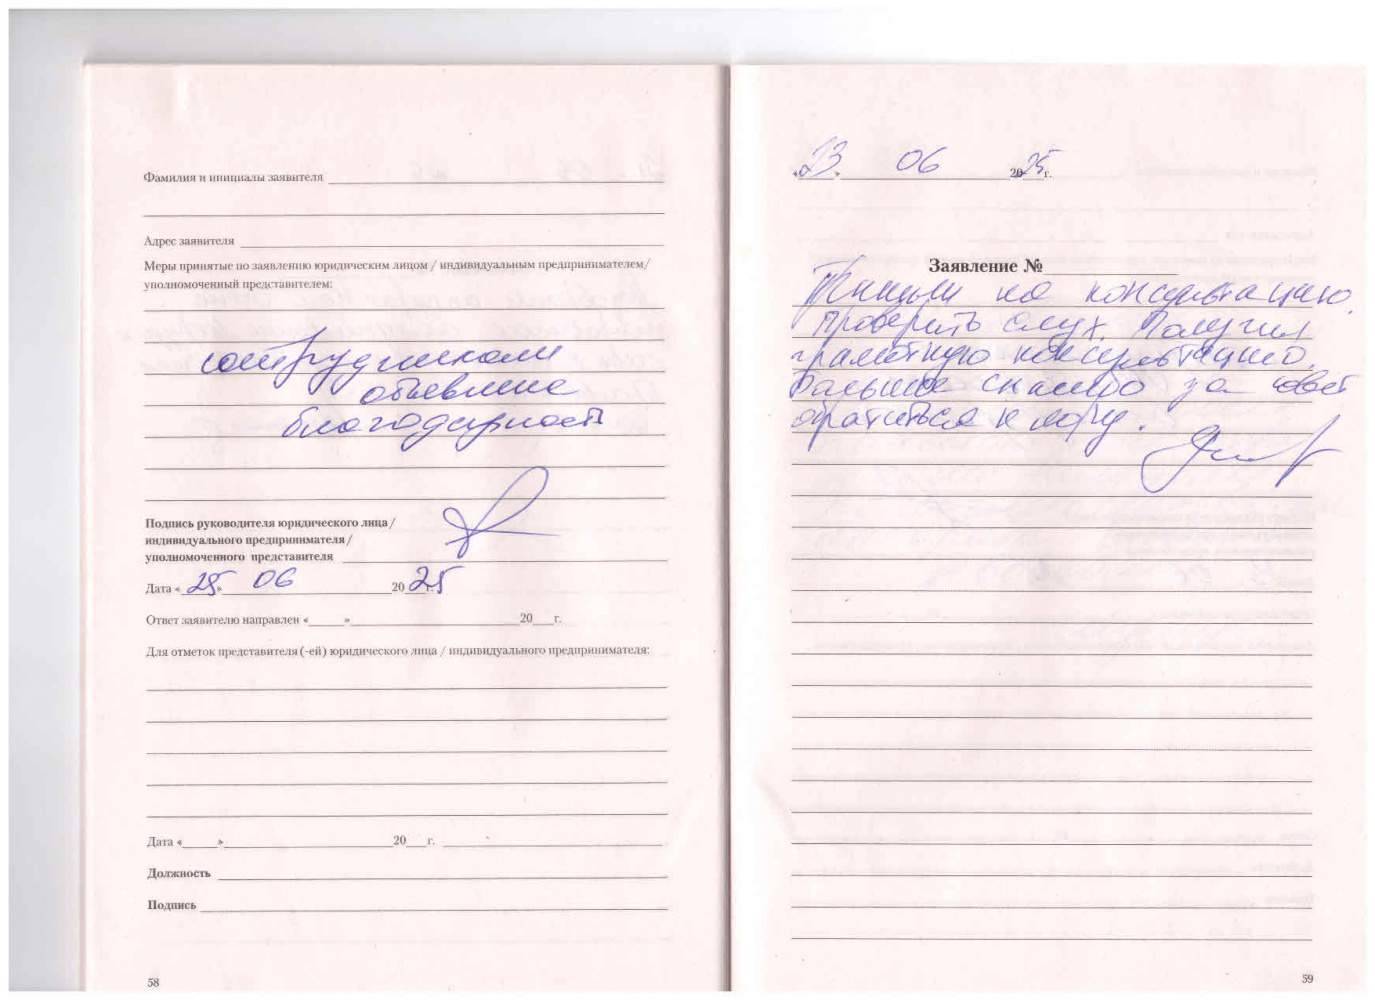 Фамилия и инициалы заявителя
Адрес заявителя
Меры принятые по заявлению юридическим лицом / индивидуальным предпринимателем/
уполномоченный представителем:
сотрудникам
объявлена
благодарность
Подпись руководителя юридического лица/
индивидуального предпринимателя/
уполномоченного представителя
Дата «25» 06 2025 г.
Ответ заявителю направлен «   »   20   г.
Для отметок представителя (-ей) юридического лица / индивидуального предпринимателя:
Дата «   »   20   г.
Должность
Подпись
58
«23» 06 2025 г.
Заявление №
Пришли на консультацию
проверить слух. Получил
грамотную консультацию.
Большое спасибо за совет
обратиться к лору.
59